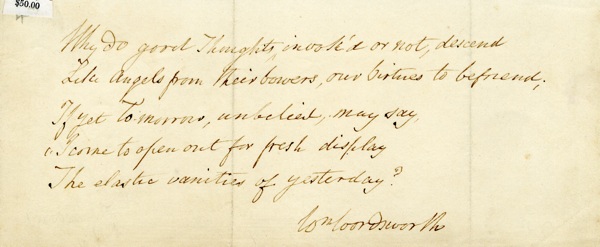 $50.00
Why do good Thoughts, invok'd or not, descend
Like Angels from their bowers, our virtues to befriend;
If yet To-morrow, unbelied, may say,
"I come to open out for fresh display
The elastic vanities of yesterday?
Wm Wordsworth